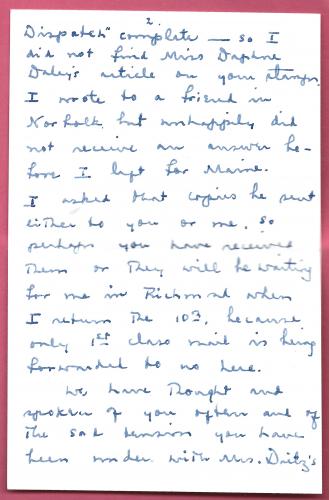 2.
Dispatch" complete — so I
did not find Miss Daphne
Daley's article on your stamps.
I wrote to a friend in
Norfolk but unhappily did
not receive an answer be-
fore I left for Maine.
I asked that copies be sent
either to you or me, so
perhaps you have received
them or they will be waiting
for me in Richmond when
I return the 10th, because
only 1st class mail is being
forwarded to me here.
We, have thought and
spoken of you often and of
the sad tension you have
been under with Mrs. Dietz's